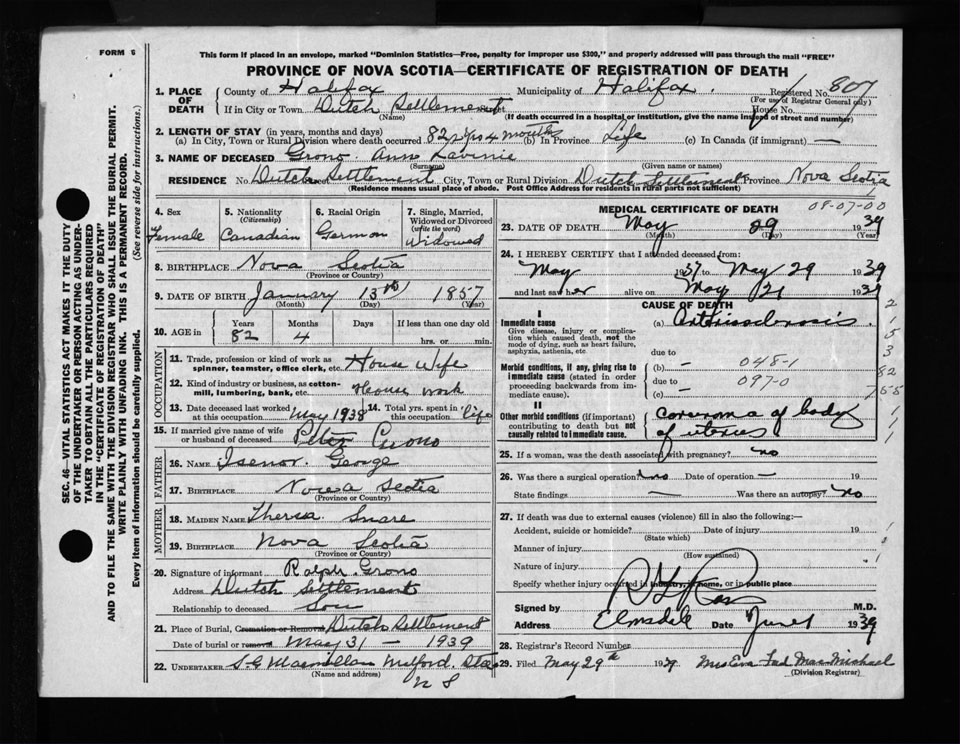 FORM 6
This form if placed in an envelope, marked "Dominion Statistics—Free, penalty for improper use $300," and properly addressed will pass through the mail "FREE"
PROVINCE OF NOVA SCOTIA—CERTIFICATE OF REGISTRATION OF DEATH
1. PLACE OF DEATH
County of Halifax Municipality of Halifax. Registered No. 807
(For use of Registrar General only)
If in City or Town Dutch Settlement House No.
(Name) (If death occurred in a hospital or institution, give the name instead of street and number)
2. LENGTH OF STAY (in years, months and days)
(a) In City, Town or Rural Division where death occurred 82 yrs 4 months (b) In Province Life (c) In Canada (if immigrant) —
3. NAME OF DECEASED Grono Ann Lavinie
(Surname) (Given name or names)
RESIDENCE No. Dutch Settlement City, Town or Rural Division Dutch Settlement Province Nova Scotia
(Residence means usual place of abode. Post Office Address for residents in rural parts not sufficient)
4. Sex Female
5. Nationality (Citizenship) Canadian
6. Racial Origin German
7. Single, Married, Widowed or Divorced (write the word) Widowed
8. BIRTHPLACE Nova Scotia
(Province or Country)
9. DATE OF BIRTH January 13th 1857
(Month) (Day) (Year)
10. AGE in Years Months Days If less than one day old
82 4 hrs. or min.
OCCUPATION
11. Trade, profession or kind of work as spinner, teamster, office clerk, etc. House Wife
12. Kind of industry or business, as cotton-mill, lumbering, bank, etc. House work
13. Date deceased last worked at this occupation May 1938 14. Total yrs. spent in this occupation life
15. If married give name of wife or husband of deceased Peter Grono
FATHER
16. NAME Isenor George
17. BIRTHPLACE Nova Scotia
(Province or Country)
MOTHER
18. MAIDEN NAME Theresa Snare
19. BIRTHPLACE Nova Scotia
(Province or Country)
20. Signature of informant Ralph Grono
Address Dutch Settlement
Relationship to deceased Son
21. Place of Burial, Cremation or Removal Dutch Settlement
Date of burial or removal May 31 — 1939
22. UNDERTAKER S G Macmillan Milford Sta
N S
(Name and address)
MEDICAL CERTIFICATE OF DEATH 08-07-00
23. DATE OF DEATH May 29 1939
(Month) (Day) (Year)
24. I HEREBY CERTIFY that I attended deceased from:
May 1937 to May 29 1939
and last saw her alive on May 21 1939
CAUSE OF DEATH
I
Immediate cause
Give disease, injury or complication which caused death, not the mode of dying, such as heart failure, asphyxia, asthenia, etc
(a) Arteriosclerosis.
due to
Morbid conditions, if any, giving rise to immediate cause (stated in order proceeding backwards from immediate cause).
(b) — 048-1
due to — 097-0
(c)
II
Other morbid conditions (if important) contributing to death but not causally related to immediate cause.
Carcinoma of body
of uterus
25. If a woman, was the death associated with pregnancy? no
26. Was there a surgical operation? no Date of operation — 19
State findings — Was there an autopsy? no
27. If death was due to external causes (violence) fill in also the following:—
Accident, suicide or homicide? Date of injury 19
(State which)
Manner of injury
(How sustained)
Nature of injury
Specify whether injury occurred in industry, home, or in public place
Signed by M.D.
Address Elmsdale Date June 1 1939
28. Registrar's Record Number
29. Filed May 29th 1939 Mrs Eva MacMichael
(Division Registrar)
SEC. 46—VITAL STATISTICS ACT MAKES IT THE DUTY
OF THE UNDERTAKER OR PERSON ACTING AS UNDER-
TAKER TO OBTAIN ALL THE PARTICULARS REQUIRED
IN THE "CERTIFICATE OF REGISTRATION OF DEATH"
AND TO FILE THE SAME WITH THE DIVISION REGISTRAR WHO SHALL ISSUE THE BURIAL PERMIT.
WRITE PLAINLY WITH UNFADING INK. THIS IS A PERMANENT RECORD.
Every item of information should be carefully supplied. (See reverse side for instructions.)